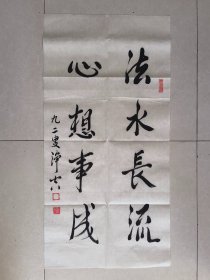 法水長流
心想事成
九二叟淨空